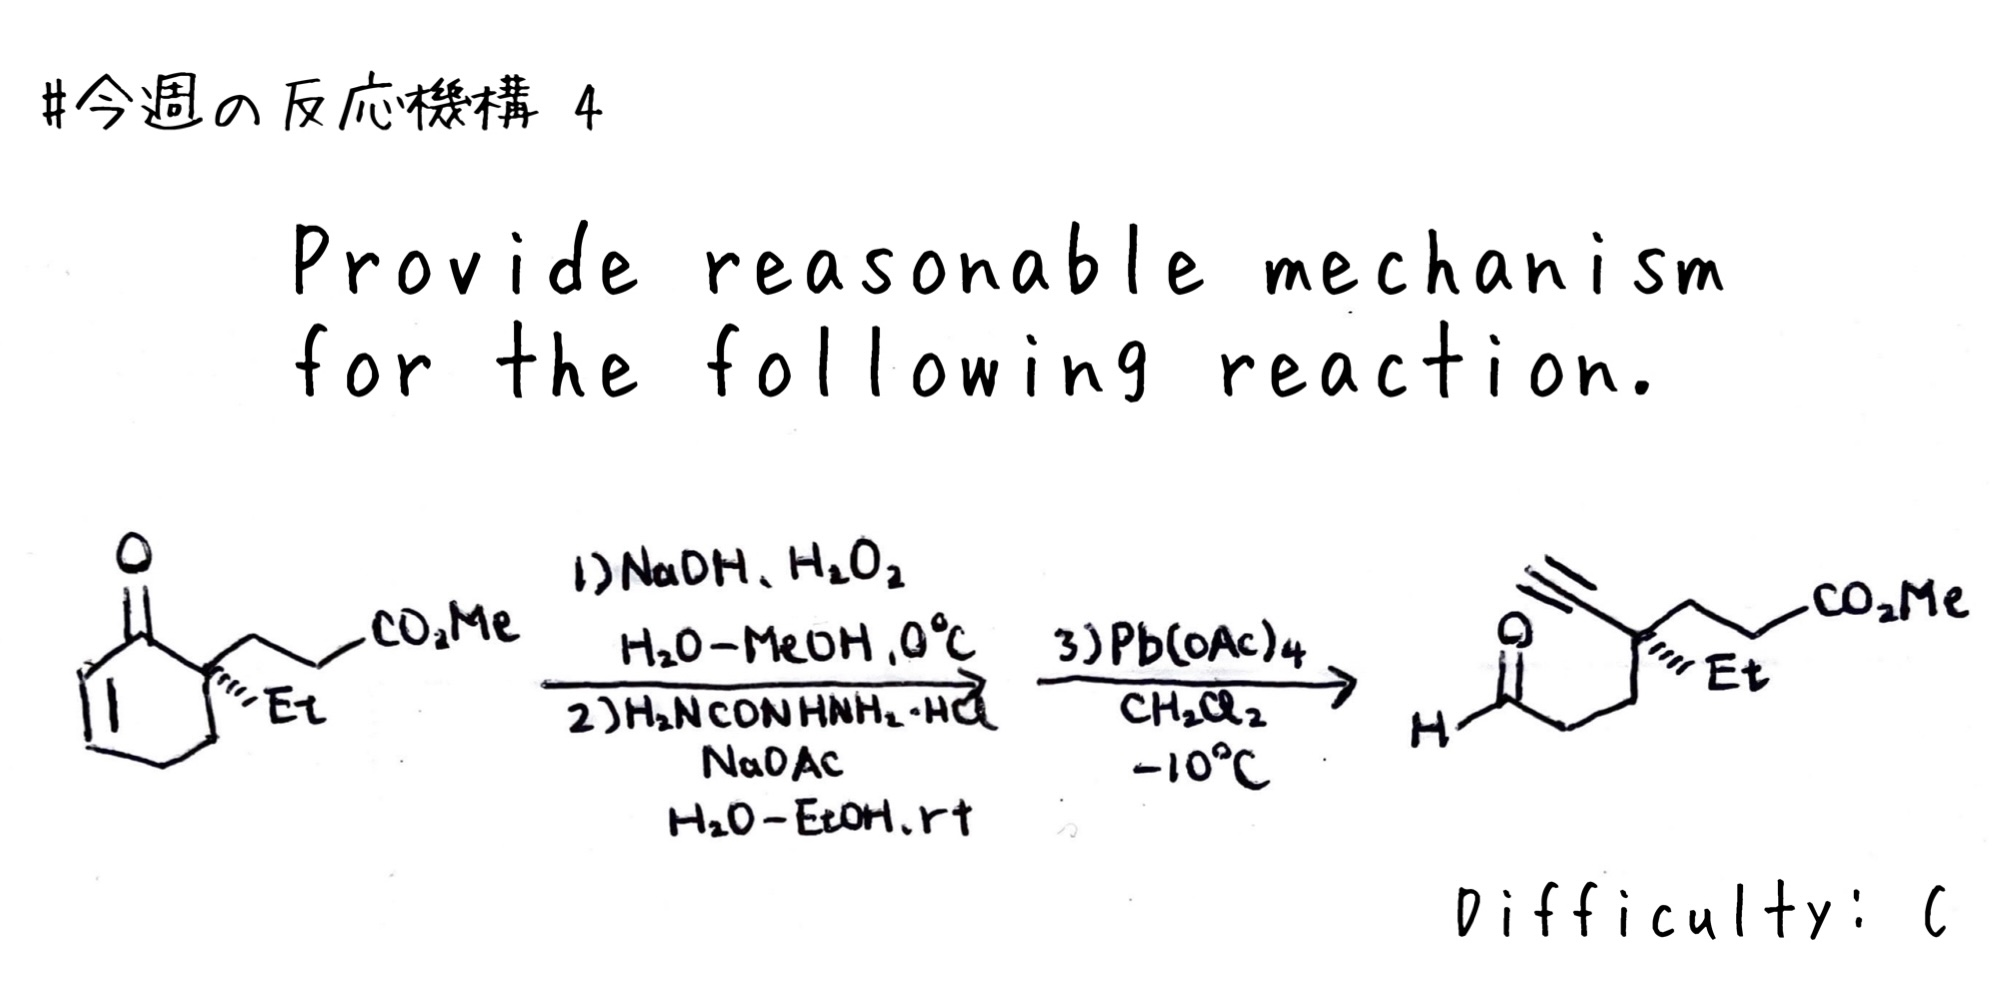 #今週の反応機構 4
Provide reasonable mechanism
for the following reaction.
O
CO₂Me
Et
1) NaOH、H₂O₂
H₂O-MeOH, 0°C
2) H₂NCONHNH₂・HCl
NaOAc
H₂O-EtOH, rt
3) Pb(OAc)₄
CH₂Cl₂
-10°C
O
H
CO₂Me
Et
Difficulty: C